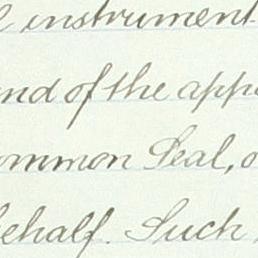 instrument
and of the app
ommon Seal, o
ehalf. Such